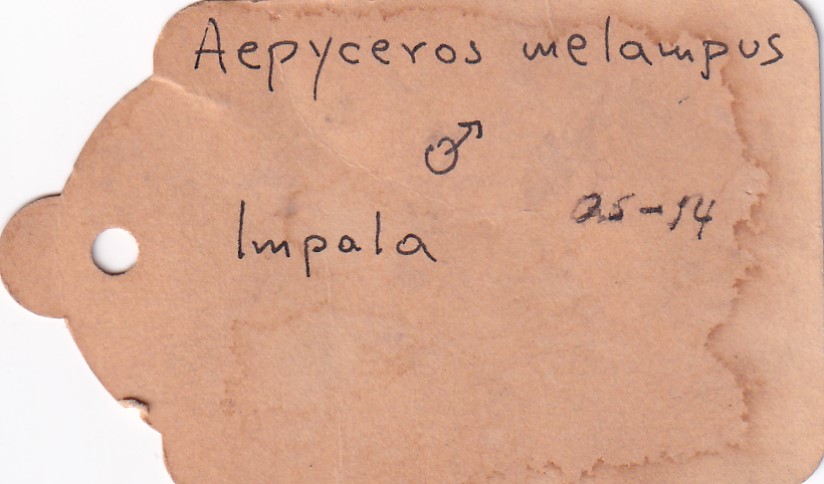 Aepyceros melampus
♂
Impala